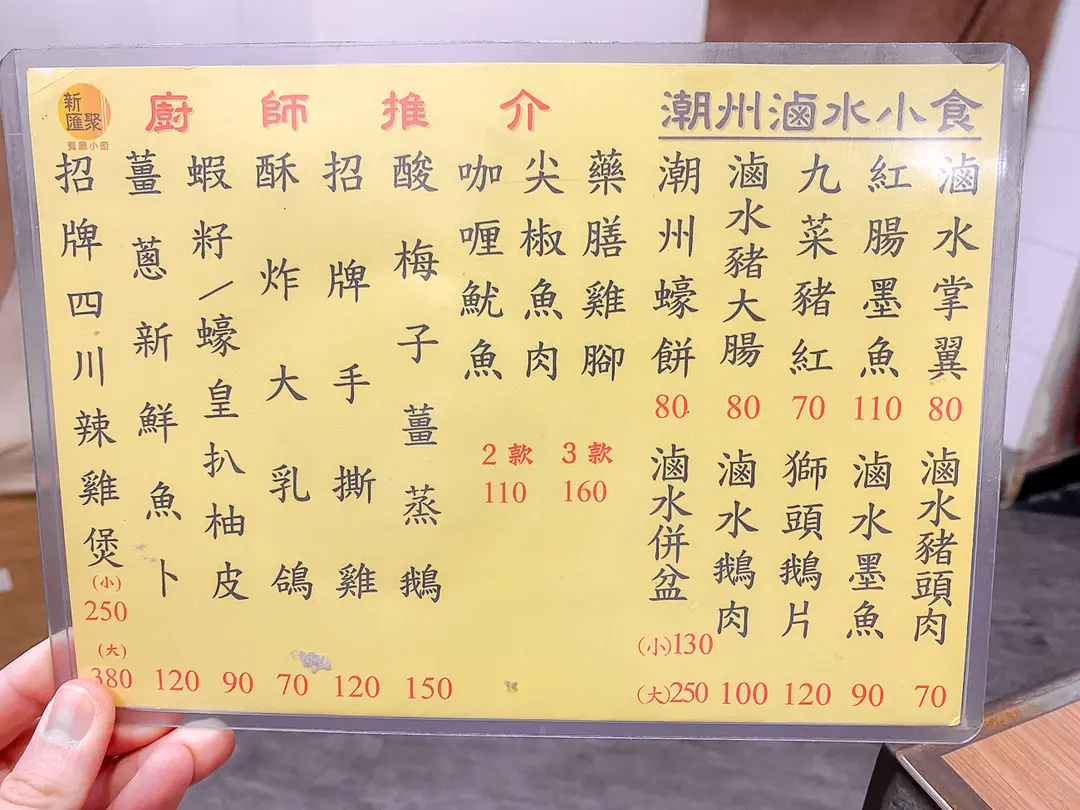 新
匯聚
餐廳小廚
廚師推介
潮州滷水小食
滷水掌翼
80
紅腸墨魚
110
九菜豬紅
70
滷水豬大腸
80
潮州蠔餅
80
滷水豬頭肉
70
滷水墨魚
90
獅頭鵝片
120
滷水鵝肉
100
滷水併盆
(小)130
(大)250
藥膳雞腳
尖椒魚肉
咖喱魷魚
2款
110
3款
160
酸梅子薑蒸鵝
150
招牌手撕雞
120
酥炸大乳鴿
70
蝦籽/蠔皇扒柚皮
90
薑蔥新鮮魚卜
120
招牌四川辣雞煲
(小)
250
(大)
380